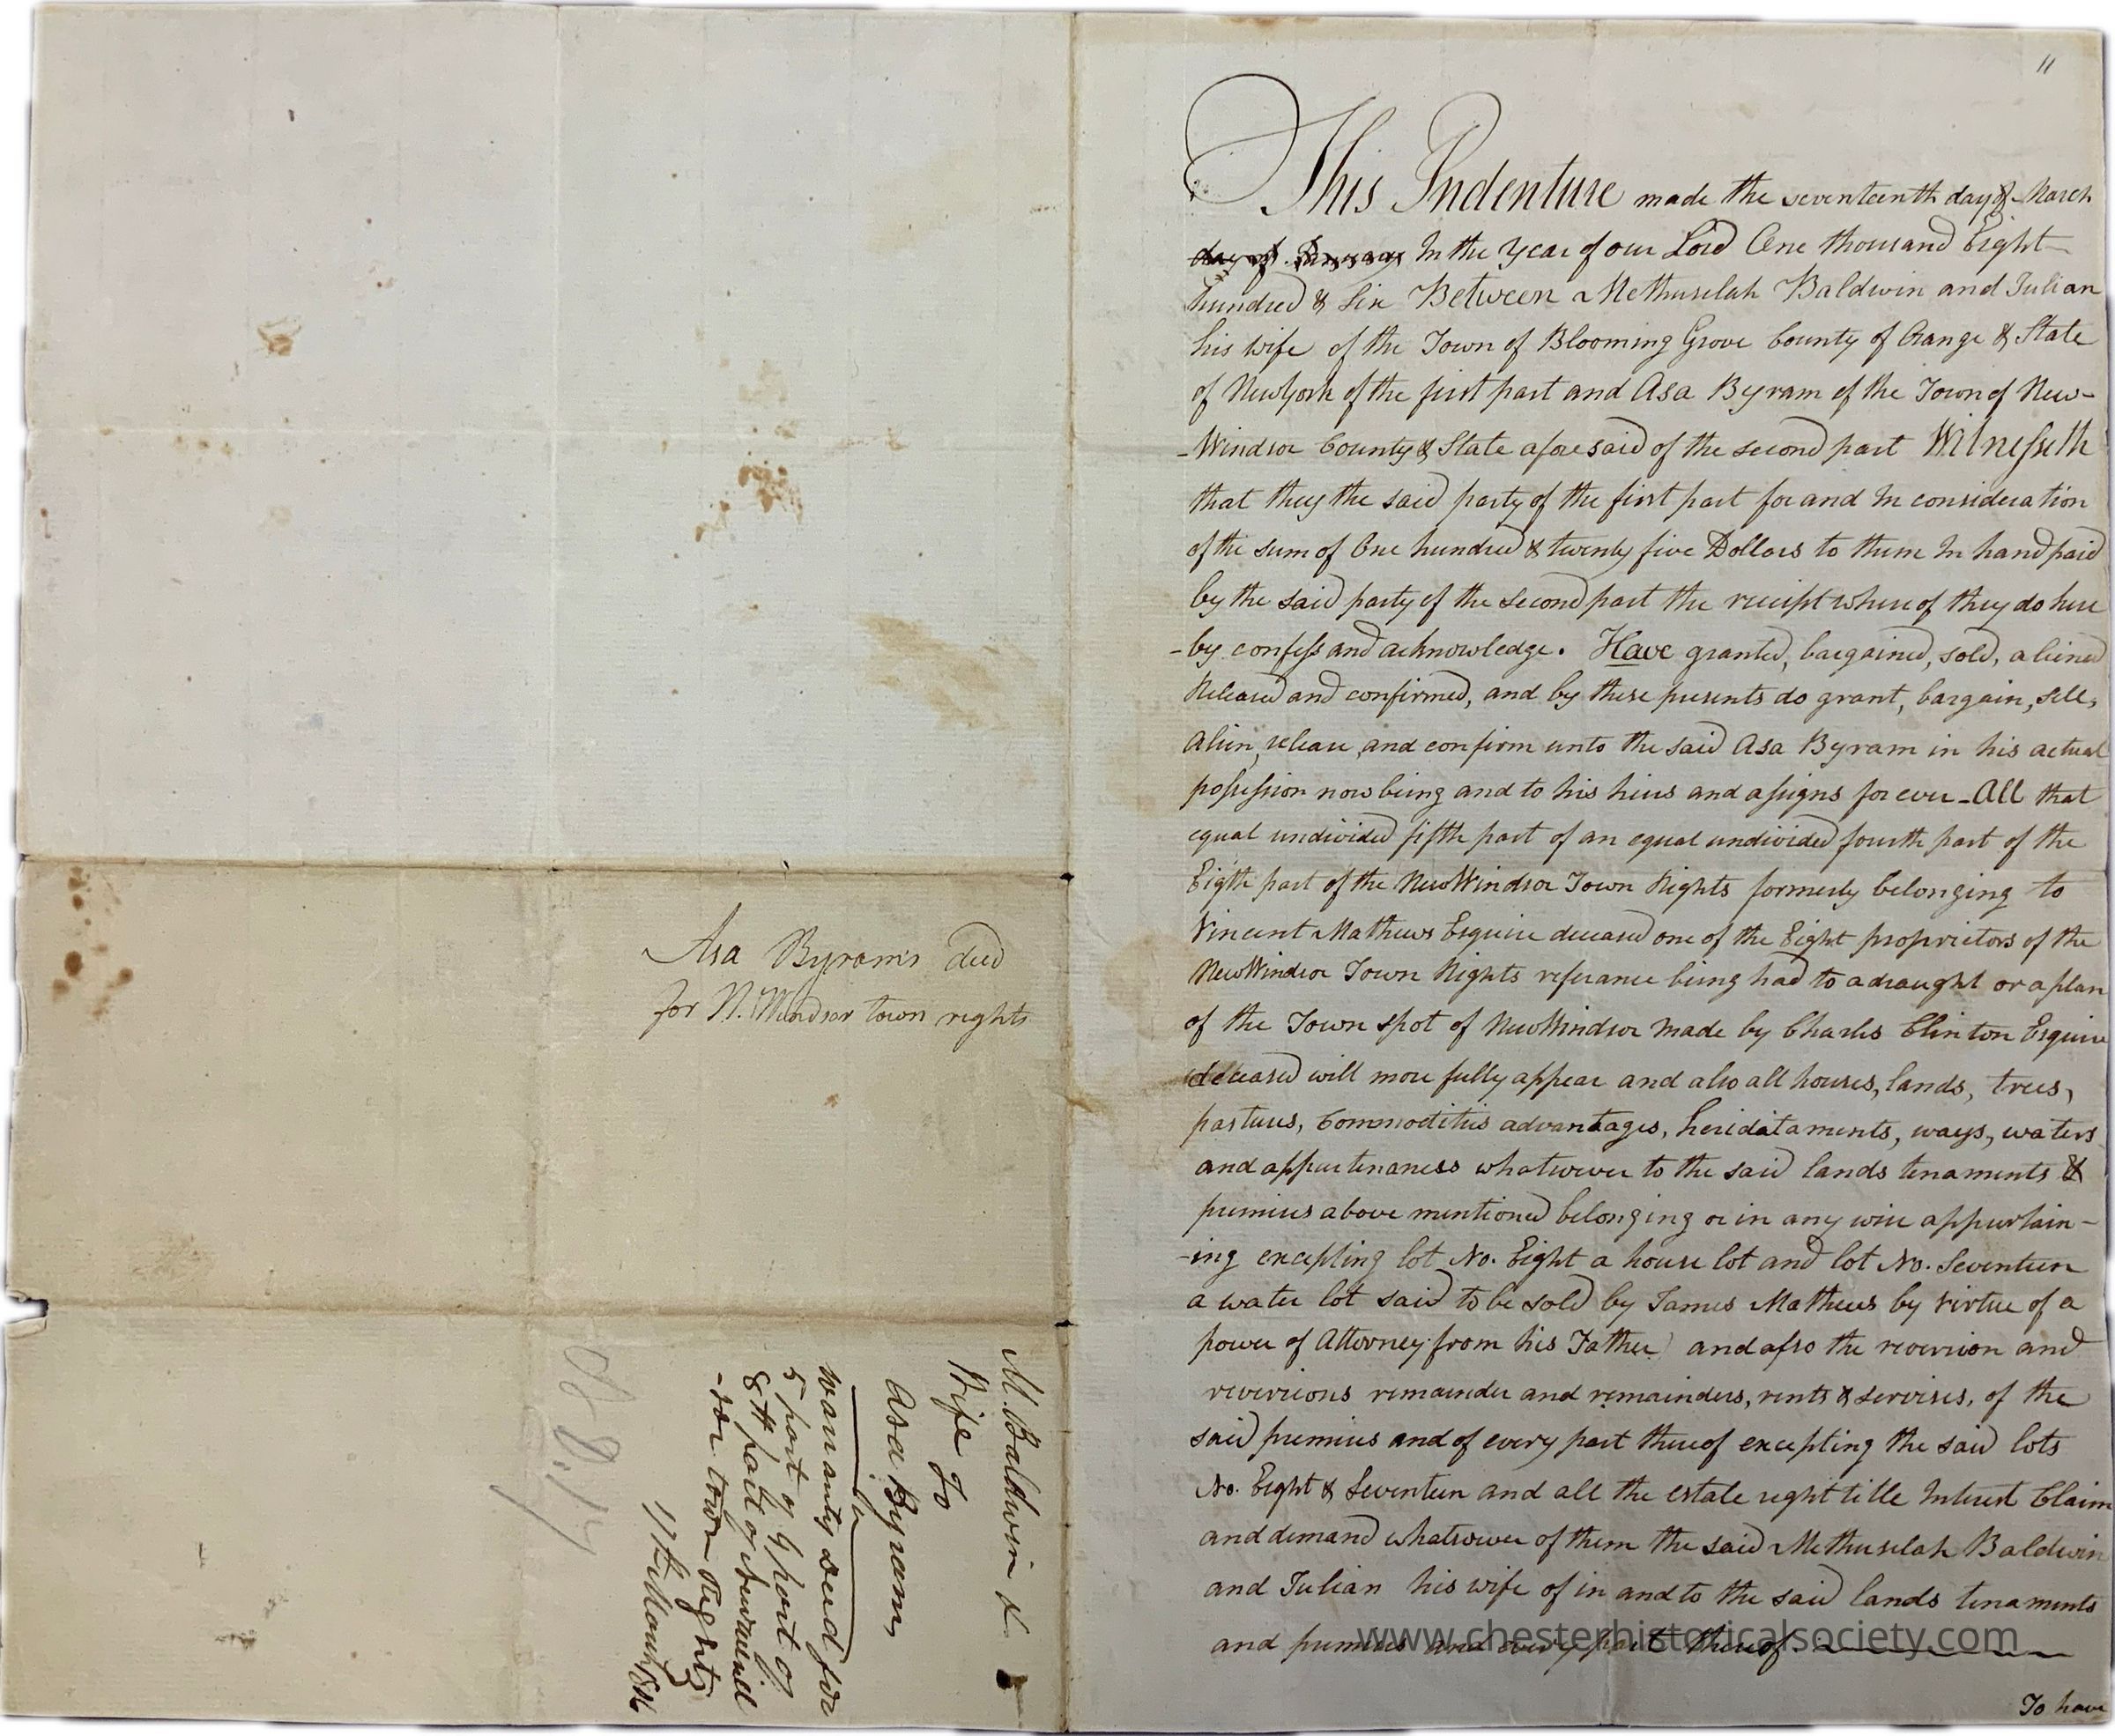 11
This Indenture made the seventeenth day of March
day of In the Year of our Lord One thousand Eight
hundred & Six Between Methuselah Baldwin and Julian
his wife of the Town of Blooming Grove County of Orange & State
of NewYork of the first part and Asa Byram of the Town of New-
-Windsor County & State aforesaid of the second part Witnesseth
that they the said party of the first part for and In consideration
of the sum of One hundred & twenty five Dollars to them In hand paid
by the said party of the second part the receipt whereof they do here
-by confess and acknowledge. Have granted, bargained, sold, aliened
Released and confirmed, and by these presents do grant, bargain, sell,
alien, release, and confirm unto the said Asa Byram in his actual
possession now being and to his heirs and assigns for ever - All that
equal undivided fifth part of an equal undivided fourth part of the
Eigth part of the NewWindsor Town Rights formerly belonging to
Vincent Mathews Esquire deceased one of the Eight proprietors of the
NewWindsor Town Rights referance being had to a draught or a plan
of the Town spot of NewWindsor made by Charles Clinton Esquire
deceased will more fully appear and also all houses, lands, trees,
pastures, Commoditiis advantages, heridataments, ways, waters
and appurtenaness whatsoever to the said lands tenaments &
premises above mentioned belonging or in any wise appurtain-
-ing excepting lot No. Eight a house lot and lot No. Seventeen
a water lot said to be sold by James Mathews by Virtue of a
power of Attorney from his Father and also the reversion and
reversions remainder and remainders, rents & servises, of the
said premises and of every part thereof excepting the said lots
No. Eight & Seventeen and all the estate right title Interest Claim
and demand whatsoever of them the said Methuselah Baldwin
and Julian his wife of in and to the said lands tenaments
and premises and every part thereof.
To have
Asa Byram's deed
for N. Windsor town rights
M. Baldwin &
Wife To
Asa Byram,
warranty deed for
5 part of 4 part of
8th part of Newwind
-sor town Rights
17th March 1806
www.chesterhistoricalsociety.com